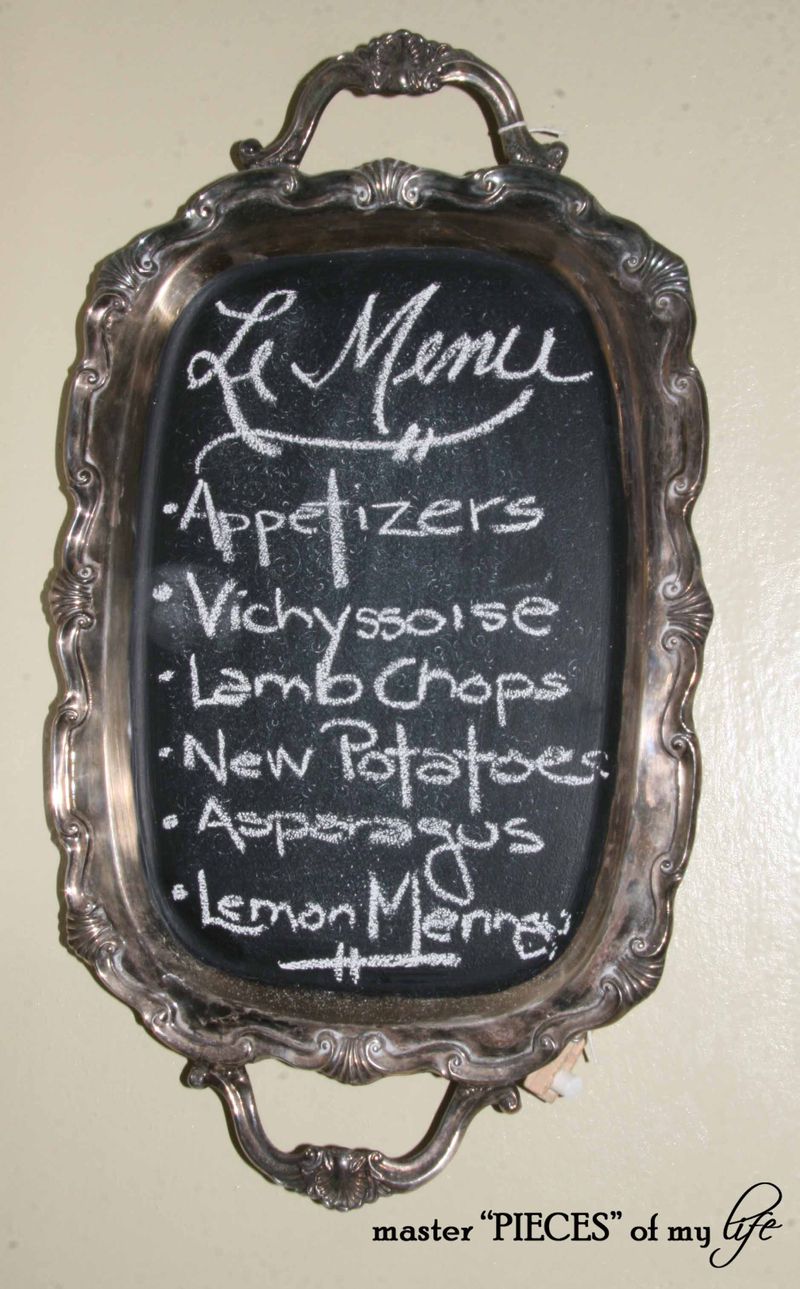 Le Menu
• Appetizers
• Vichyssoise
• Lamb Chops
• New Potatoes
• Asparagus
• Lemon
master “PIECES” of my life